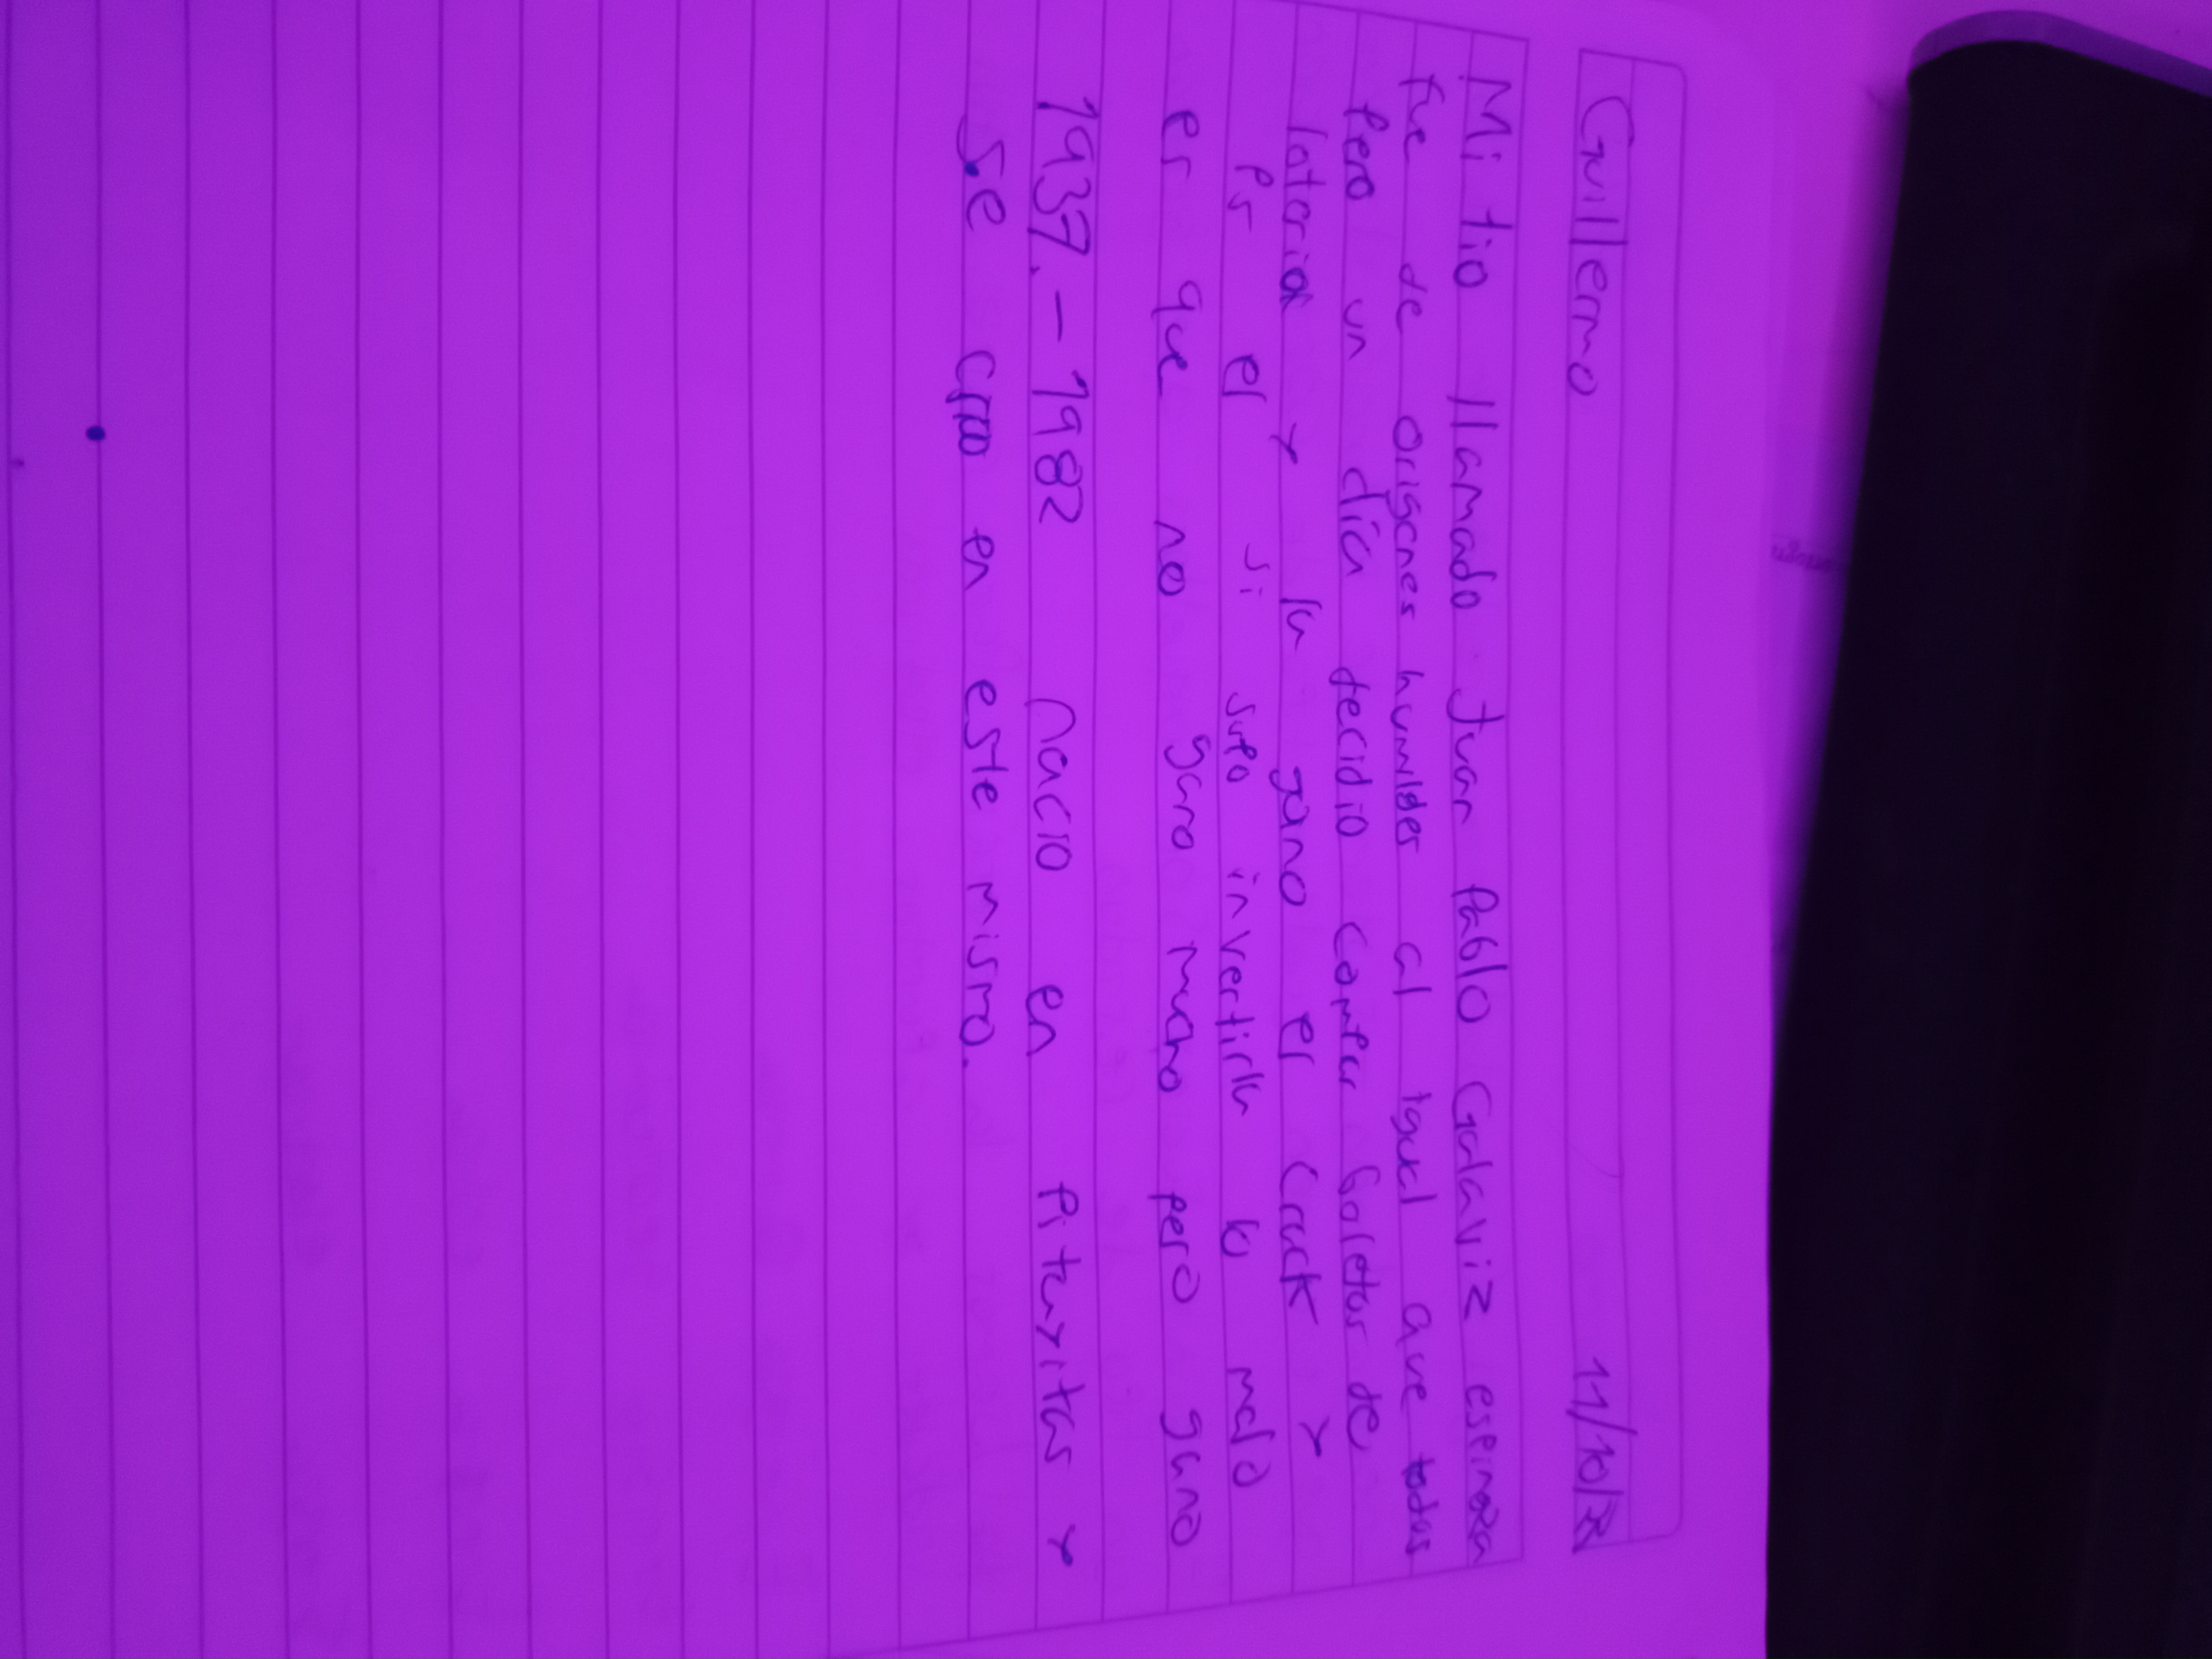 Guillermo 11/10/25
Mi tio llamado Juan Pablo Galaviz espinoza
fue de origenes humildes al igual que todos
Pero un dia decidio comprar boletos de
loteria y la gano er crack y
Ps el si supo invertirla lo malo
er que no gano mucho pero gano
1937.-1982 nacio en Pitayitas y
Se crio en este mismo.